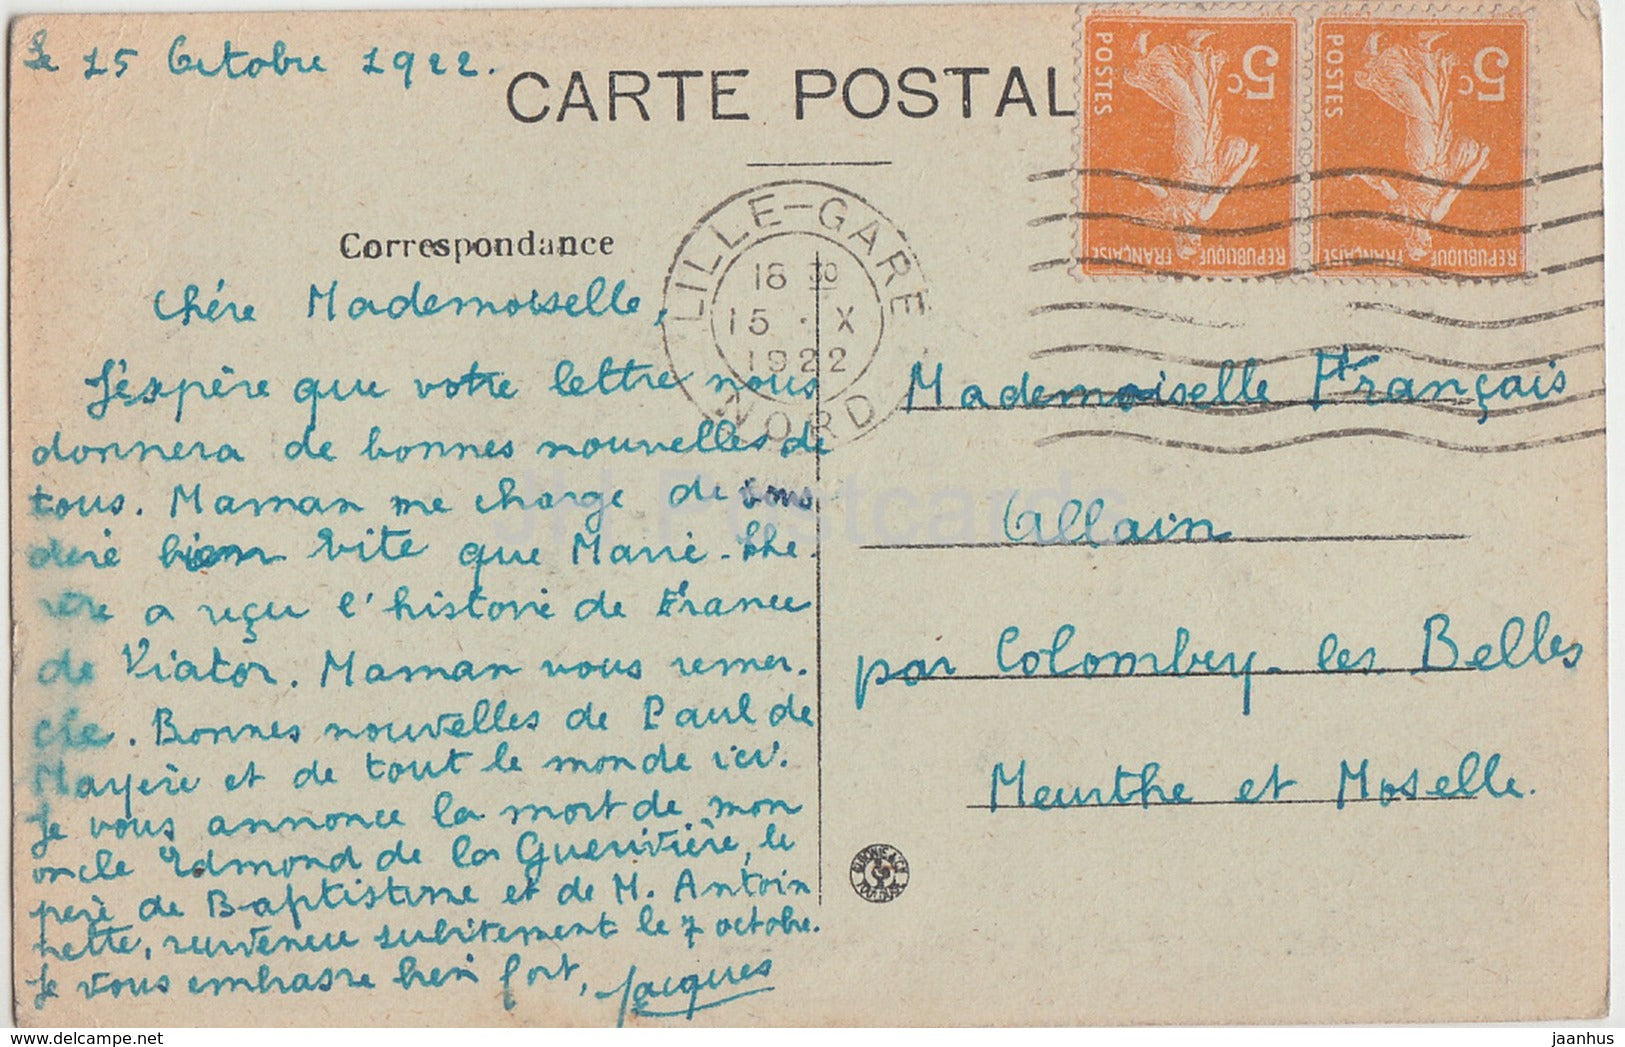 Le 15 Octobre 1922.
CARTE POSTAL
5c
POSTES
REPUBLIQUE FRANÇAISE
5c
POSTES
REPUBLIQUE FRANÇAISE
LILLE-GARE
18 30
15 · X
1922
NORD
Correspondance
Chére Mademoiselle,
J'espère que votre lettre nous
donnera de bonnes nouvelles de
tous. Maman me charge de vous
dire bien vite que Marie-Thé-
rère a reçu l'histoire de France
de Viator. Maman vous remer-
cie. Bonnes nouvelles de Paul de
Mayere et de tout le monde ici.
Je vous annonce la mort de mon
oncle Edmond de la Guerivière, le
père de Baptistine et de M. Antoin
nette, survenue subitement le 7 octobre.
Je vous embrasse bien fort, Jacques
Mademoiselle Français
Allain
par Colombey-les Belles
Meurthe et Moselle.
JH Postcards
jaanhus